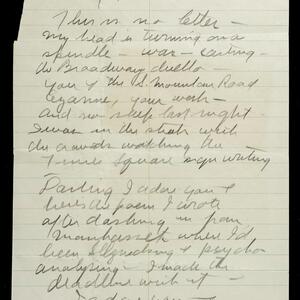 This is no letter —
my head is turning on a
spindle — war — casting —
the Broadway duello —
you & the S. Mountain Road
Cezanne, your work —
and no sleep last night.
I was in the streets with
the crowds watching the
Times Square sign writing
Darling I adore you &
here's the poem I wrote
after dashing in from
Manhasset where I'd
been & psycho
analysing — I made the
deadline with it —